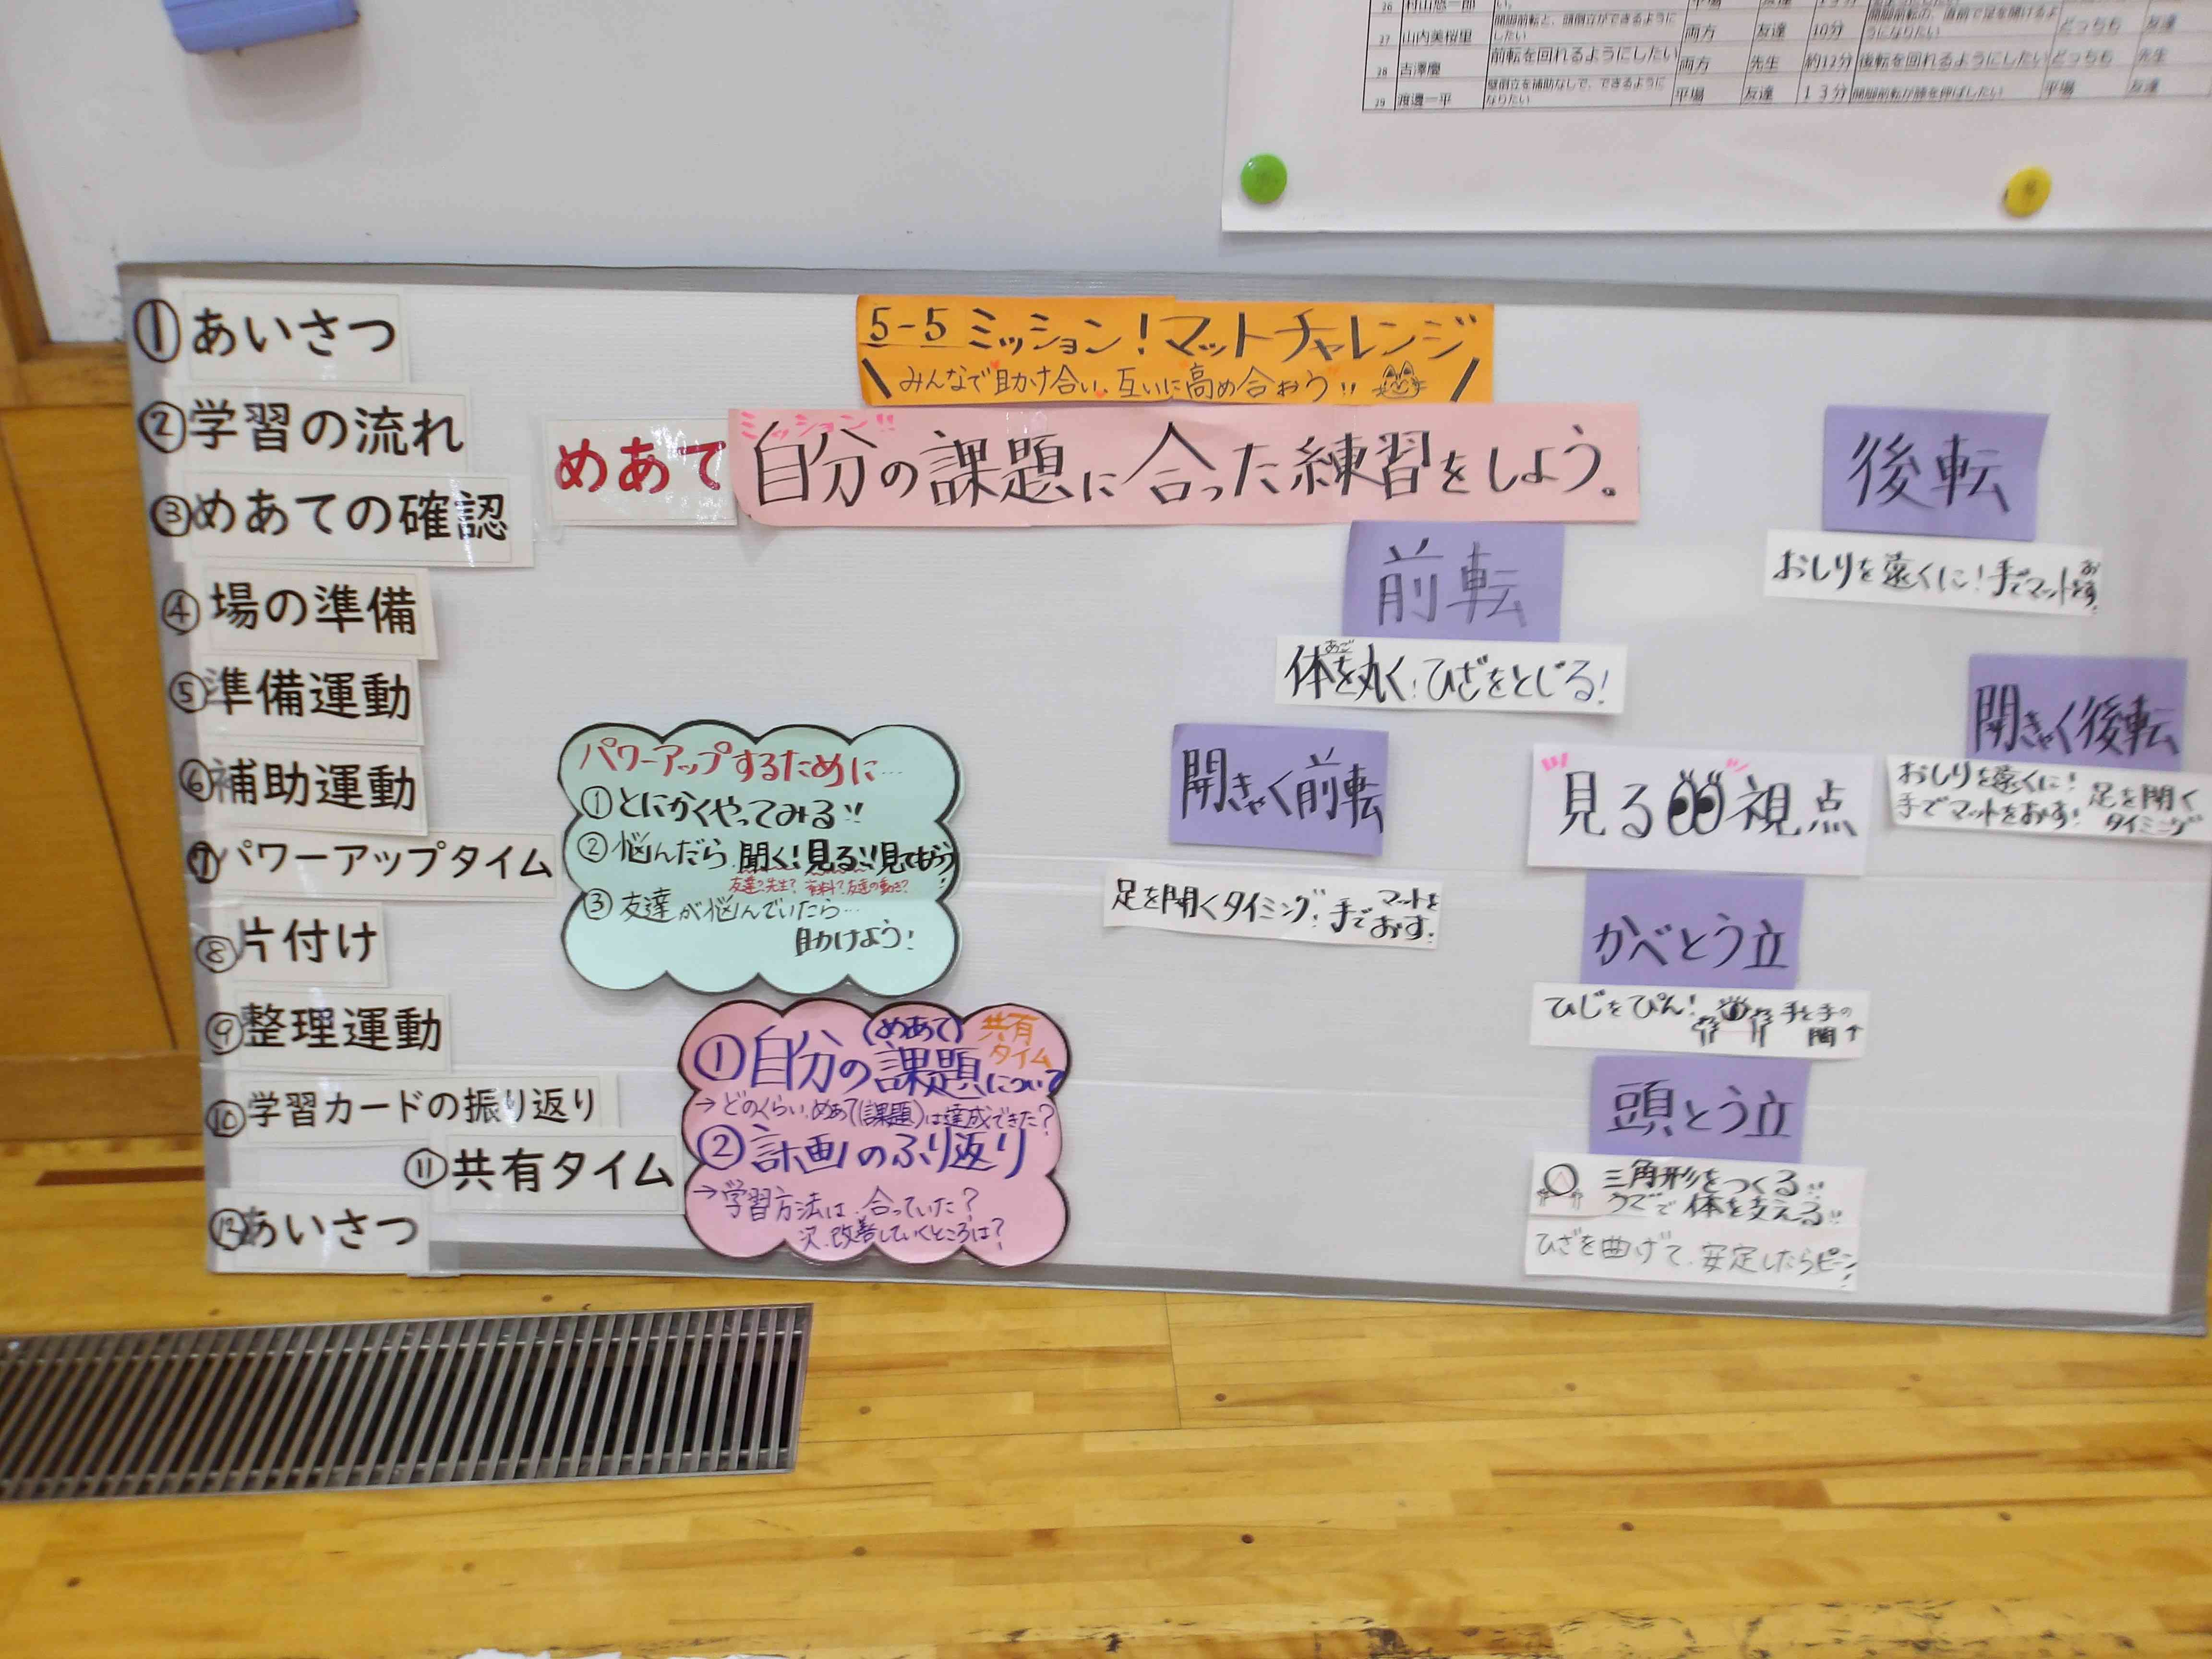 27 山内美桜里 開脚前転と、頭倒立ができるようにしたい 両方 友達 10分 どっちも 友達
28 吉澤慶 前転を回れるようにしたい 両方 先生 約12分 後転を回れるようにしたい どっちも 先生
29 渡邊一平 壁倒立を補助なしで、できるようになりたい 平場 友達 13分 開脚前転が膝を伸ばしたい 平場 友達
①あいさつ
②学習の流れ
③めあての確認
④場の準備
⑤準備運動
⑥補助運動
⑦パワーアップタイム
⑧片付け
⑨整理運動
⑩学習カードの振り返り
⑪共有タイム
⑫あいさつ
5-5 ミッション!マットチャレンジ
\みんなで助け合い、互いに高め合おう!!/
ミッション!!
めあて 自分の課題に合った練習をしよう。
パワーアップするために…
①とにかくやってみる!!
②悩んだら、聞く!見る!!見てもらう!
友達?先生? 資料?友達の動き?
③友達が悩んでいたら…
助けよう!
(めあて) 共有タイム
①自分の課題について
→どのくらい、めあて(課題)は達成できた?
②計画のふり返り
→学習方法は、合っていた?
次、改善していくところは?
後転
おしりを遠くに!手でマットをおす!
前転
あご
体を丸く!ひざをとじる!
開きゃく前転
足を開くタイミング!手でマットをおす!
開きゃく後転
おしりを遠くに!足を開く
手でマットをおす!タイミング
見る視点
かべとう立
ひじをぴん!手と手の間↑
頭とう立
三角形をつくる!!
うでで体を支える!!
ひざを曲げて、安定したらピーン!